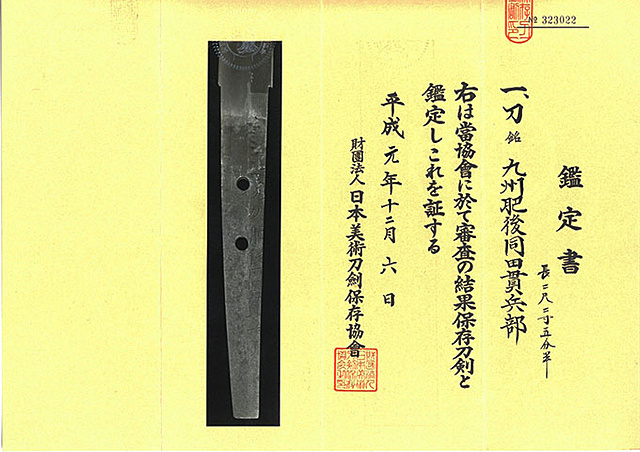 鑑定書
一、刀 銘 九州肥後同田貫兵部
長二尺二寸五分半
右は當協會に於て審査の結果保存刀剣と
鑑定しこれを証する
平成元年十二月六日
財團法人日本美術刀劍保存協會
№ 323022